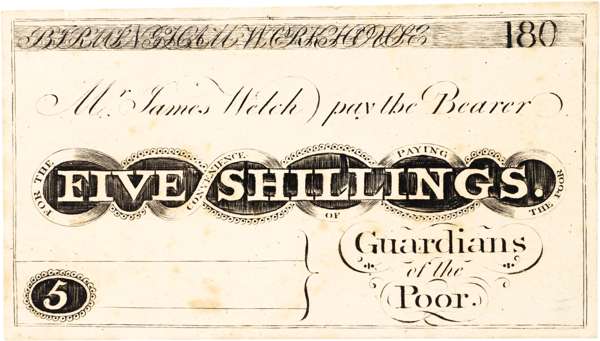 BIRMINGHAM WORKHOUSE 180
Mr. James Welch pay the Bearer
FOR THE CONVENIENCE OF PAYING THE POOR
FIVE SHILLINGS.
Guardians
of the
Poor.
5